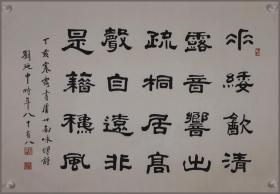 垂緌㱃清
露音響出
疏桐居高
聲自遠非
是藉穐風
丁亥寒露書虞世南詠蟬詩
劉延申時年八十有八